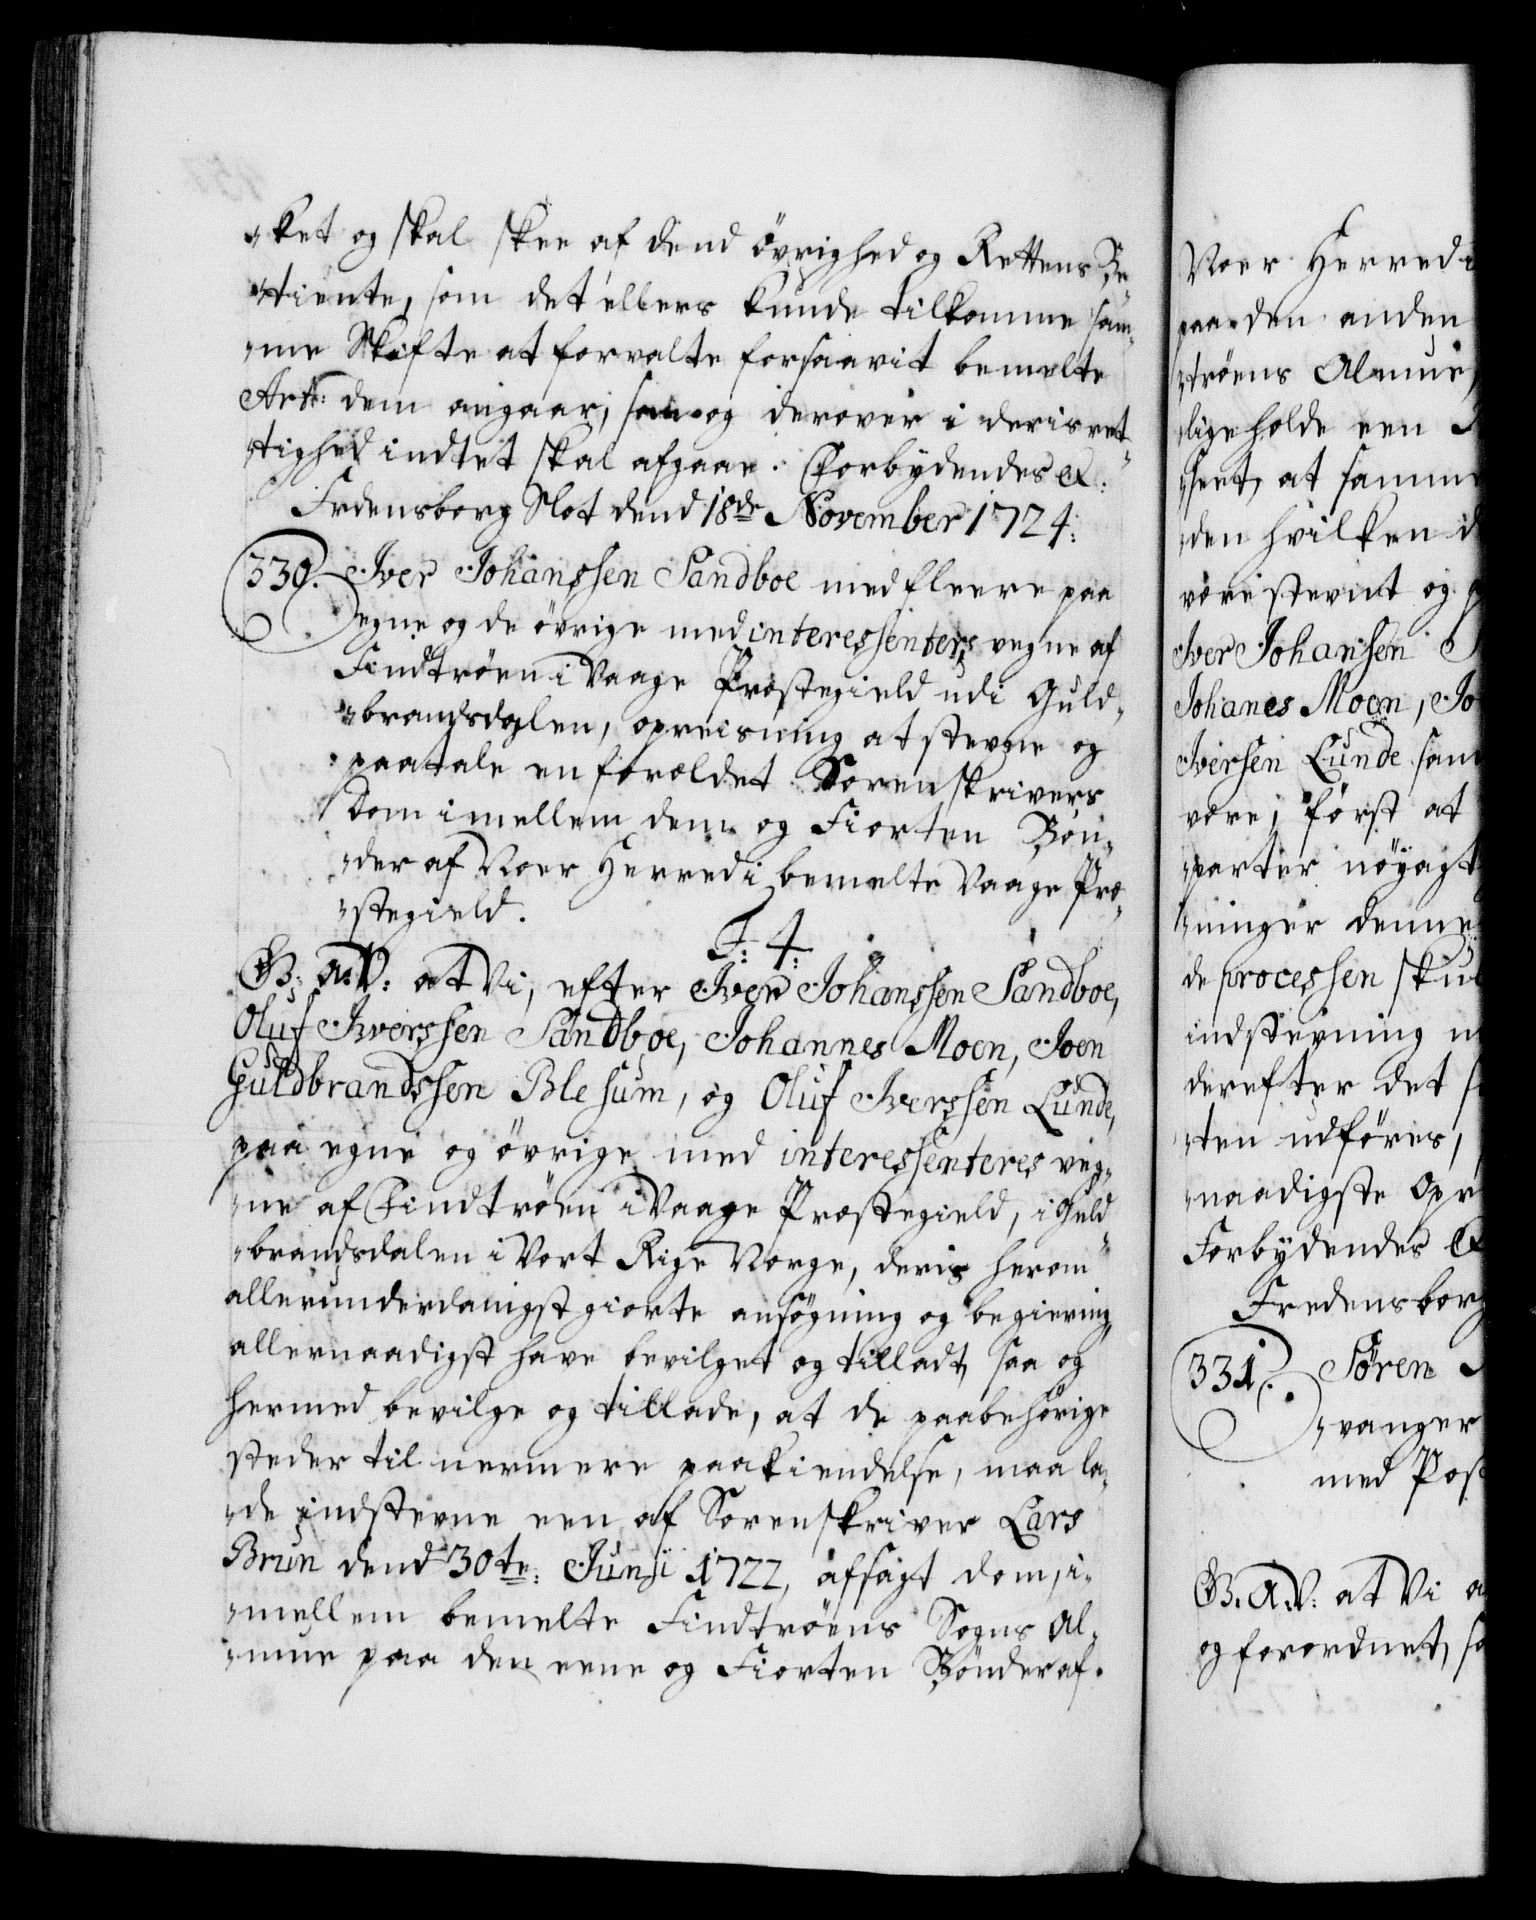 "ket og skal skee af dend övrighed og Rettens Be¬
"tiente, som det ellers kunde tilkomme sam¬
"me Skifte at forvalte forsaavit bemelte
Artl: dem angaar, som og derover i deris ret¬
"tighed indtet skal afgaae. Forbydendes &.
Fredensborg Slot dend 18de November 1724:
330. Iver Johanssen Sandboe med fleere paa
egne og de övrige med interessenters vegne af
Findtröen i Vaage Præstegield udi Guld¬
"brandsdalen, opreisning at stevne og
paatale en forældet Sorenskrivers
Dom imellem dem og Fiorten Bön¬
"der af Noer Herred i bemelte Vaage Præ¬
"stegield.
F: 4:
G: A: V: at Vi, efter Iver Johanssen Sandboe,
Oluf Iverssen Sandboe, Johannes Moen, Joen
Guldbrandssen Blesum, og Oluf Iverssen Lunde,
paa egne og övrige med interessenteres veg¬
"ne af Findtröen i Vaage Præstegield, i Guld¬
"brandsdalen i Vort Rige Norge, deris herom
allerunderdanigst giorte ansögning og begiering,
allernaadigst have bevilget og tilladt, saa og
hermed bevilge og tillade, at de paabehörige
steder til nermere paakiendelse, maa la¬
"de indstevne een af Sorenskriver Lars
Brun dend 30te: Junii 1722, afsagt dom, i¬
"mellem bemelte Findtröens Sogns Al¬
"mue paa den eene og Fiorten Bönder af
Noer Herred i
paa den anden
"tröens Almue,
"lige holde een
"sert, at samme
"den hvilken d
være stevnt og
Iver Johansen
Johanes Moen, Jo
Iversen Lunde sam
være, först at
"parter nöyagt
"ninger denne
de processen skul
indstevning
derefter det
"ten udföres,
"naadigste Opr
Forbydendes &
Fredensborg
331. Sören
"vanger
med Pos
G. A. V: at Vi a
og forordnet, so